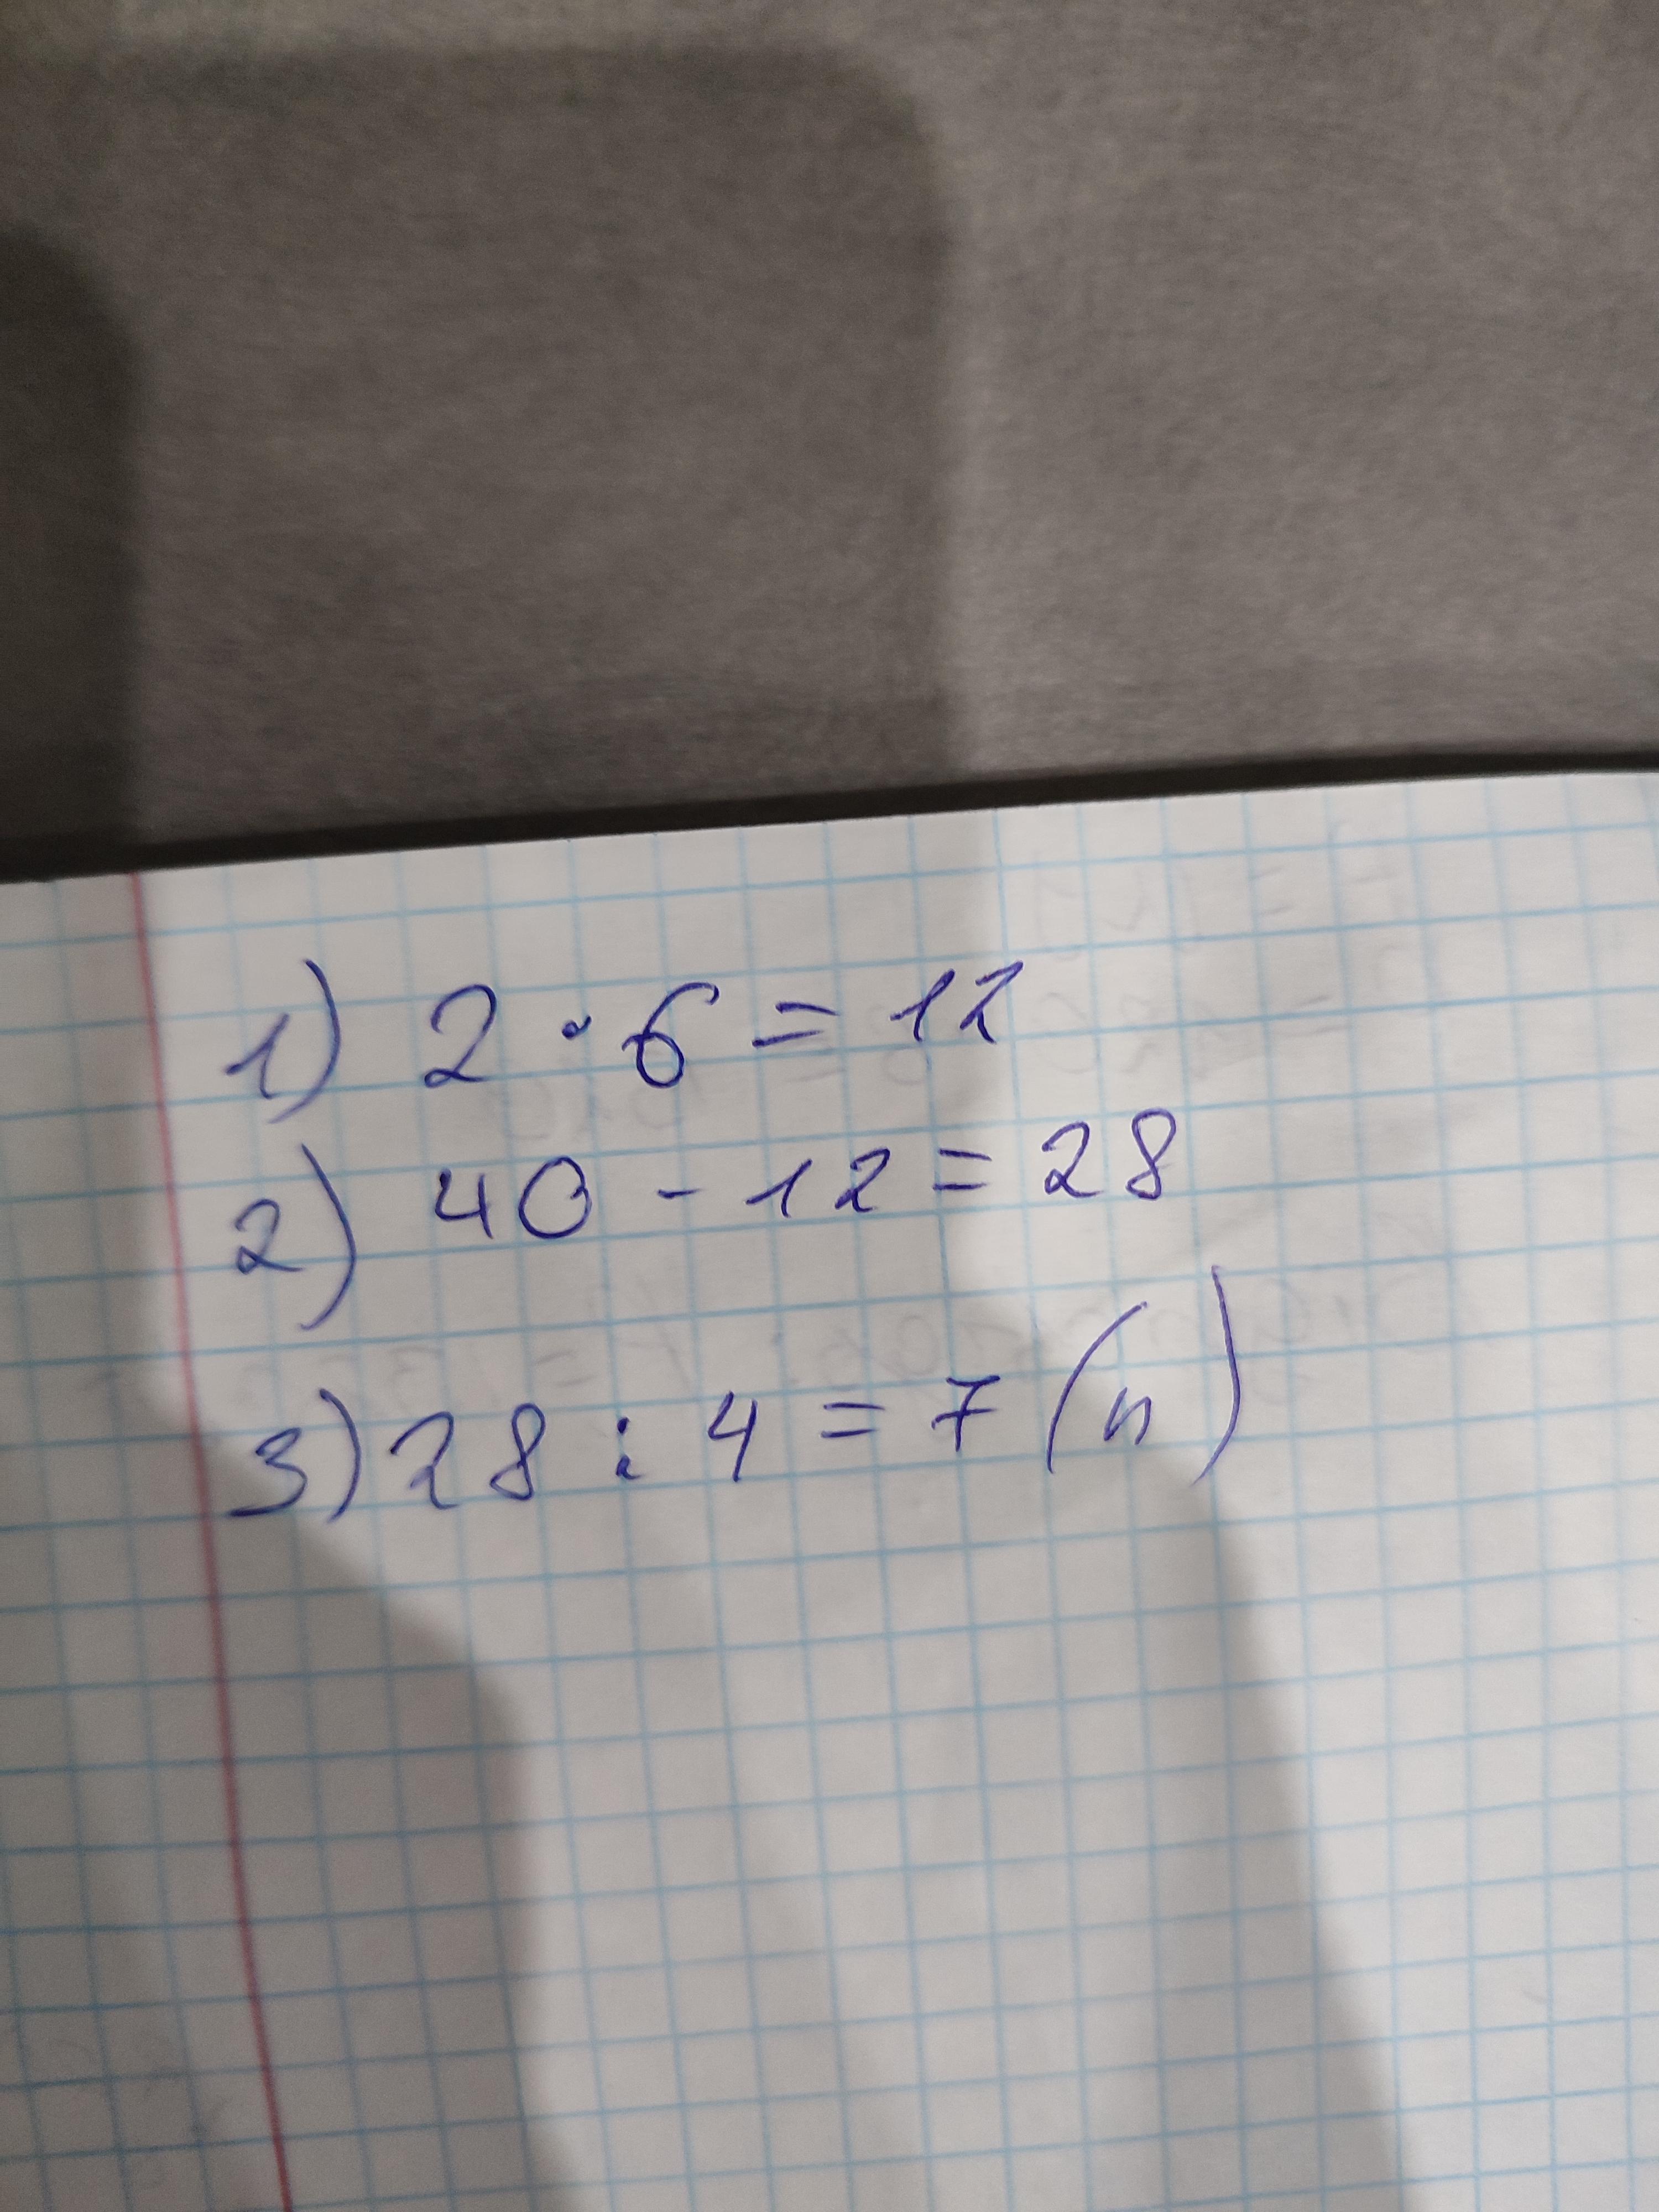 1) 2 · 6 = 12
2) 40 - 12 = 28
3) 28 : 4 = 7 (п)